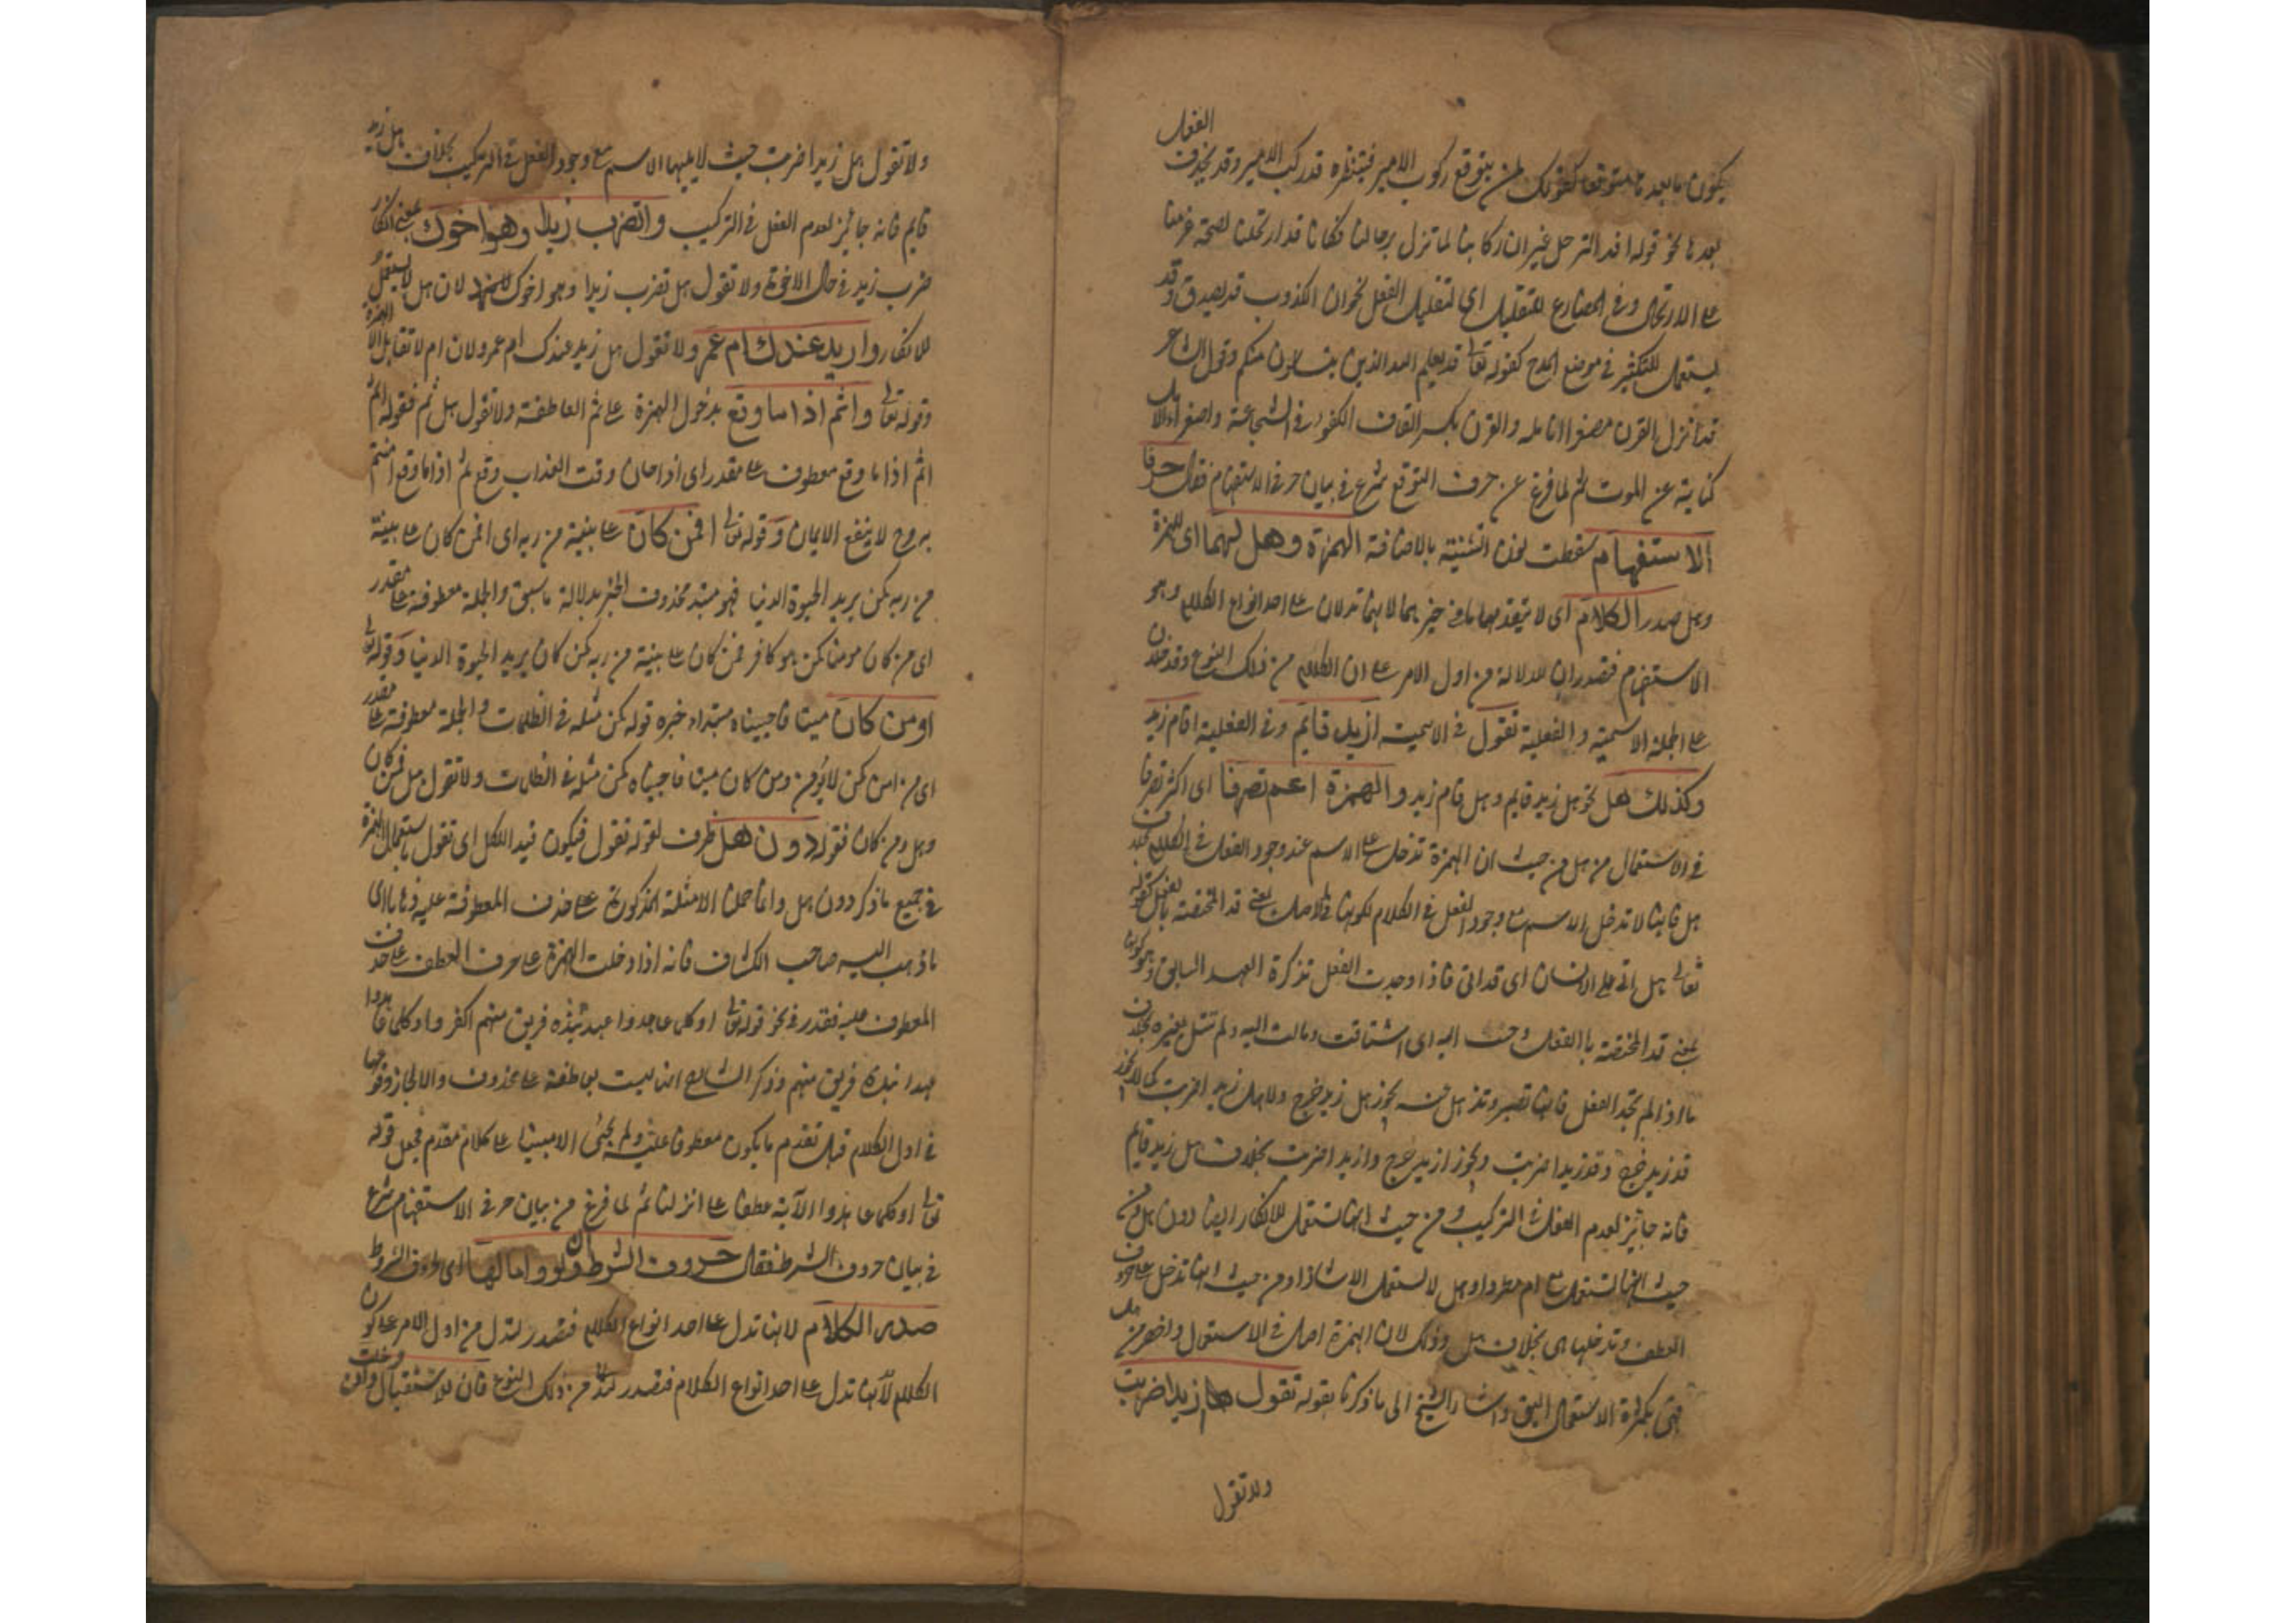 يكون ما بعدها متوقعا كقولك لمن يتوقع ركوب الامير فينتظره قد ركب الامير وقد يحذف الفعل
بعدها نحو قوله افد الترحل غير ان ركابنا لما تزل برحالنا فكان قد ارتحلنا لصحة عزمنا
على الارتحال وفي المضارع للتقليل اى لتقليل الفعل نحو ان الكذوب قد يصدق وقد
يستعمل للتكثير في موضع المدح كقوله تعالى قد يعلم الله الذين يتسللون منكم وقول الشاعر
قد انزل القرن مصفرا انامله والقرن بكسر القاف الكفو في الشجاعة واصفرار الانامل
كناية عن الموت ثم لما فرغ عن حرف التوقع شرع في بيان حرفي الاستفهام فقال حرفا
الاستفهام سقطت نون التثنية بالاضافة الهمزة وهل لهما اى للهمزة
وهل صدر الكلام اى لا يتقدمهما ما في حيزهما لانهما تدلان على احد انواع الكلام وهو
الاستفهام فتصدران للدلالة من اول الامر على ان الكلام من ذلك النوع وتدخلان
على الجملة الاسمية والفعلية تقول في الاسمية ازيد قايم وفي الفعلية اقام زيد
وكذلك هل نحو هل زيد قايم وهل قام زيد والهمزة اعم تصرفا اى اكثر تصرفا
في الاستعمال من هل من حيث ان الهمزة تدخل على الاسم عند وجود الفعل في الكلام بخلاف
هل فانها لا تدخل الاسم مع وجود الفعل في الكلام لكونها في الاصل بمعنى قد المختصة بالفعل كقوله
تعالى هل اتى على الانسان اى قد اتى فاذا وجدت الفعل تذكرة العهد السابق وهو كونها
بمعنى قد المختصة بالفعل وحنت اليه اى اشتاقت ومالت اليه ولم تتسل بغيره بخلاف
ما اذا لم تجد الفعل فانها تصبر وتذهل عنه يجوز هل زيد خرج ولا هل زيدا ضربت كما لا يجوز
قد زيد خرج وقد زيدا ضربت ويجوز ازيد خرج وازيدا ضربت بخلاف هل زيد قايم
فانه جايز لعدم الفعل في التركيب ومن حيث انها تستعمل للانكار ايضا دون هل ومن
حيث انها تستعمل مع ام مطردا وهل لا تستعمل الا شاذا ومن حيث انها تدخل على حروف
العطف وتدخلها هى بخلاف هل وذلك لان الهمزة اصل في الاستعمال واخصر من هل
فهى بكثرة الاستعمال اليق واشار الشيخ الى ما ذكرنا بقوله تقول ازيدا ضربت
ولا تقول
ولا تقول هل زيدا ضربت حيث لا يليها الاسم مع وجود الفعل في التركيب بخلاف هل زيد
قايم فانه جائز لعدم الفعل في التركيب واتضرب زيدا وهو اخوك بمعنى انكار
ضرب زيد في حال الاخوة ولا تقول هل تضرب زيدا وهو اخوك لان هل لا يستعمل
للانكار وازيد عندك ام عمرو ولا تقول هل زيد عندك ام عمرو لان ام لا تقابل الا الهمزة
وقوله تعالى واثم اذا ما وقع بدخول الهمزة على ثم العاطفة ولا تقول هل ثم فقوله اثم
اثم اذا ما وقع معطوف على مقدر اى اذا حان وقت العذاب وقع ثم اذا ما وقع امنتم
به وح لا ينفع الايمان وقوله تعالى افمن كان على بينة من ربه اى افمن كان على بينة
من ربه كمن يريد الحيوة الدنيا فهو مبتدأ محذوف الخبر بدلالة ما سبق والجملة معطوفة على مقدر
اى من كان مومنا كمن هو كافر فمن كان على بينة من ربه كمن كان يريد الحيوة الدنيا وقوله تعالى
اومن كان ميتا فاحييناه مبتداء خبره قوله كمن مثله في الظلمات والجملة معطوفة على مقدر
اى من امن كمن لا يؤمن ومن كان ميتا فاحييناه كمن مثله في الظلمات ولا تقول هل فمن كان
وهل ومن كان فقوله دون هل ظرف لقوله تقول فيكون قيد اللكل اى تقول باستعمال الهمزة
في جميع ما ذكر دون هل وانما حملنا الامثلة المذكورة على حذف المعطوفة عليه وفاقا الى
ما ذهب اليه صاحب الكشاف فانه اذا دخلت الهمزة على حرف العطف على حذف
المعطوف عليه فقدر في نحو قوله تعالى اوكلما عاهدوا عهدا نبذه فريق منهم اكفروا وكلما عاهدوا
عهدا نبذه فريق منهم وذكر الشارح انها ليست بعاطفة على محذوف والا لجاز وقوعها
في اول الكلام قبل تقدم ما يكون معطوفا عليه ولم يجئ الا مبنيا على كلام مقدم فجعل قوله
تعالى اوكلما عاهدوا الآية عطفا على انزلنا ثم لما فرغ من بيان حرفي الاستفهام شرع
في بيان حروف الشرط فقال حروف الشرط ان ولو واما لها اى لحروف الشرط
صدر الكلام لانها تدل على احد انواع الكلام فتصدر لتدل من اول الامر على كون
الكلام لانها تدل على احد انواع الكلام فتصدر من ذلك النوع فان للاستقبال وان دخلت